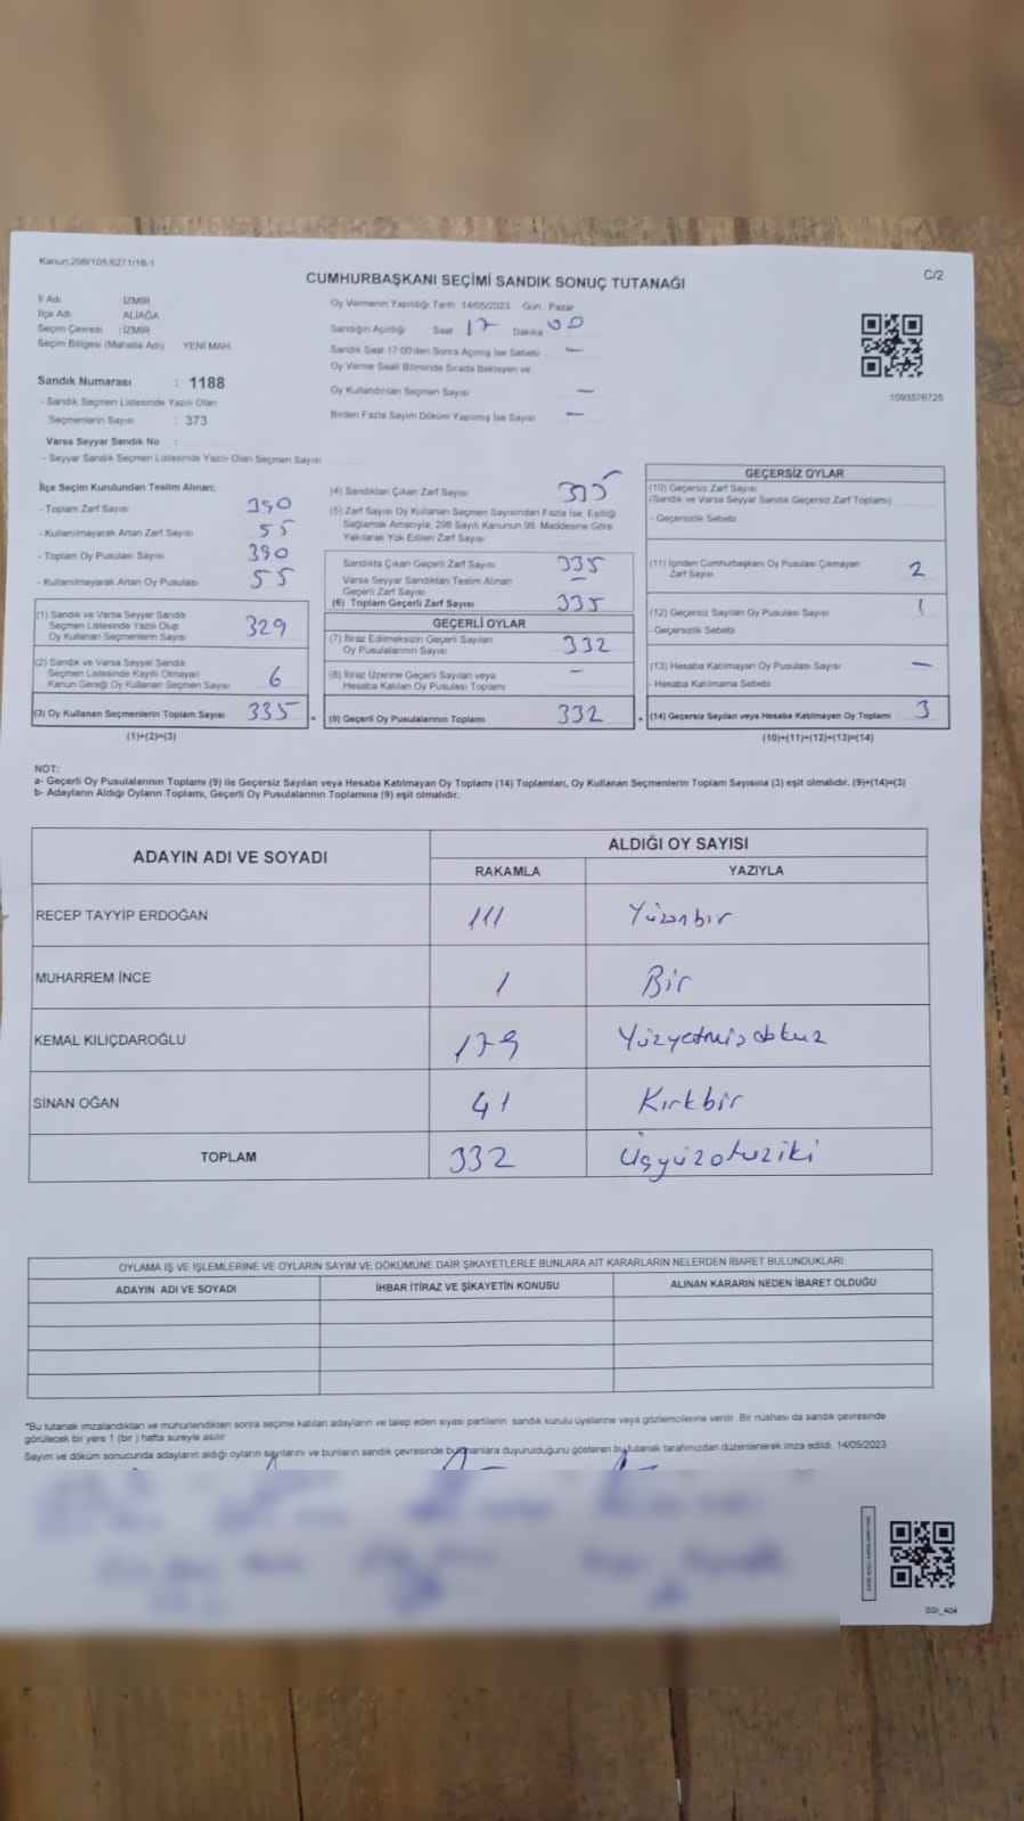 Kanun:298/105,6271/18-1
C/2
CUMHURBAŞKANI SEÇİMİ SANDIK SONUÇ TUTANAĞI
İl Adı : İZMİR
İlçe Adı : ALİAĞA
Seçim Çevresi : İZMİR
Seçim Bölgesi (Mahalle Adı) YENİ MAH.
Sandık Numarası : 1188
- Sandık Seçmen Listesinde Yazılı Olan
Seçmenlerin Sayısı : 373
Varsa Seyyar Sandık No :
- Seyyar Sandık Seçmen Listesinde Yazılı Olan Seçmen Sayısı
Oy Vermenin Yapıldığı Tarih 14/05/2023 Gün: Pazar
Sandığın Açıldığı Saat 17 Dakika 00
Sandık Saat 17:00'den Sonra Açılmış İse Sebebi -
Oy Verme Saati Bitiminde Sırada Bekleyen ve
Oy Kullandırılan Seçmen Sayısı -
Birden Fazla Sayım Döküm Yapılmış İse Sayısı -
1093576725
İlçe Seçim Kurulundan Teslim Alınan;
- Toplam Zarf Sayısı 390
- Kullanılmayarak Artan Zarf Sayısı 55
- Toplam Oy Pusulası Sayısı 390
- Kullanılmayarak Artan Oy Pusulası 55
(1) Sandık ve Varsa Seyyar Sandık
Seçmen Listesinde Yazılı Olup
Oy Kullanan Seçmenlerin Sayısı 329
(2) Sandık ve Varsa Seyyar Sandık
Seçmen Listesinde Kayıtlı Olmayan
Kanun Gereği Oy Kullanan Seçmen Sayısı 6
(3) Oy Kullanan Seçmenlerin Toplam Sayısı 335
(1)+(2)=(3)
(4) Sandıktan Çıkan Zarf Sayısı 335
(5) Zarf Sayısı Oy Kullanan Seçmen Sayısından Fazla İse, Eşitliği
Sağlamak Amacıyla, 298 Sayılı Kanunun 98. Maddesine Göre
Yakılarak Yok Edilen Zarf Sayısı
Sandıkta Çıkan Geçerli Zarf Sayısı 335
Varsa Seyyar Sandıktan Teslim Alınan
Geçerli Zarf Sayısı -
(6) Toplam Geçerli Zarf Sayısı 335
GEÇERLİ OYLAR
(7) İtiraz Edilmeksizin Geçerli Sayılan
Oy Pusulalarının Sayısı 332
(8) İtiraz Üzerine Geçerli Sayılan veya
Hesaba Katılan Oy Pusulası Toplamı -
(9) Geçerli Oy Pusulalarının Toplamı 332
GEÇERSİZ OYLAR
(10) Geçersiz Zarf Sayısı
(Sandık ve Varsa Seyyar Sandık Geçersiz Zarf Toplamı)
- Geçersizlik Sebebi
(11) İçinden Cumhurbaşkanı Oy Pusulası Çıkmayan
Zarf Sayısı 2
(12) Geçersiz Sayılan Oy Pusulası Sayısı 1
- Geçersizlik Sebebi
(13) Hesaba Katılmayan Oy Pusulası Sayısı -
- Hesaba Katılmama Sebebi
(14) Geçersiz Sayılan veya Hesaba Katılmayan Oy Toplamı 3
(10)+(11)+(12)+(13)=(14)
NOT:
a- Geçerli Oy Pusulalarının Toplamı (9) ile Geçersiz Sayılan veya Hesaba Katılmayan Oy Toplamı (14) Toplamları, Oy Kullanan Seçmenlerin Toplam Sayısına (3) eşit olmalıdır. (9)+(14)=(3)
b- Adayların Aldığı Oyların Toplamı, Geçerli Oy Pusulalarının Toplamına (9) eşit olmalıdır.
ADAYIN ADI VE SOYADI ALDIĞI OY SAYISI
RAKAMLA YAZIYLA
RECEP TAYYİP ERDOĞAN 111 Yüzonbir
MUHARREM İNCE 1 Bir
KEMAL KILIÇDAROĞLU 179 Yüzyetmişdokuz
SİNAN OĞAN 41 Kırkbir
TOPLAM 332 Üçyüzotuziki
OYLAMA İŞ VE İŞLEMLERİNE VE OYLARIN SAYIM VE DÖKÜMÜNE DAİR ŞİKAYETLERLE BUNLARA AİT KARARLARIN NELERDEN İBARET BULUNDUKLARI
ADAYIN ADI VE SOYADI İHBAR İTİRAZ VE ŞİKAYETİN KONUSU ALINAN KARARIN NEDEN İBARET OLDUĞU
"Bu tutanak imzalandıktan ve mühürlendikten sonra seçime katılan adayların ve talep eden siyasi partilerin sandık kurulu üyelerine veya gözlemcilerine verilir. Bir nüshası da sandık çevresinde
görülecek bir yere 1 (bir ) hafta süreyle asılır
Sayım ve döküm sonucunda adayların aldığı oyların sayılarını ve bunların sandık çevresinde bulunanlara duyurulduğunu gösteren bu tutanak tarafımızdan düzenlenerek imza edildi. 14/05/2023